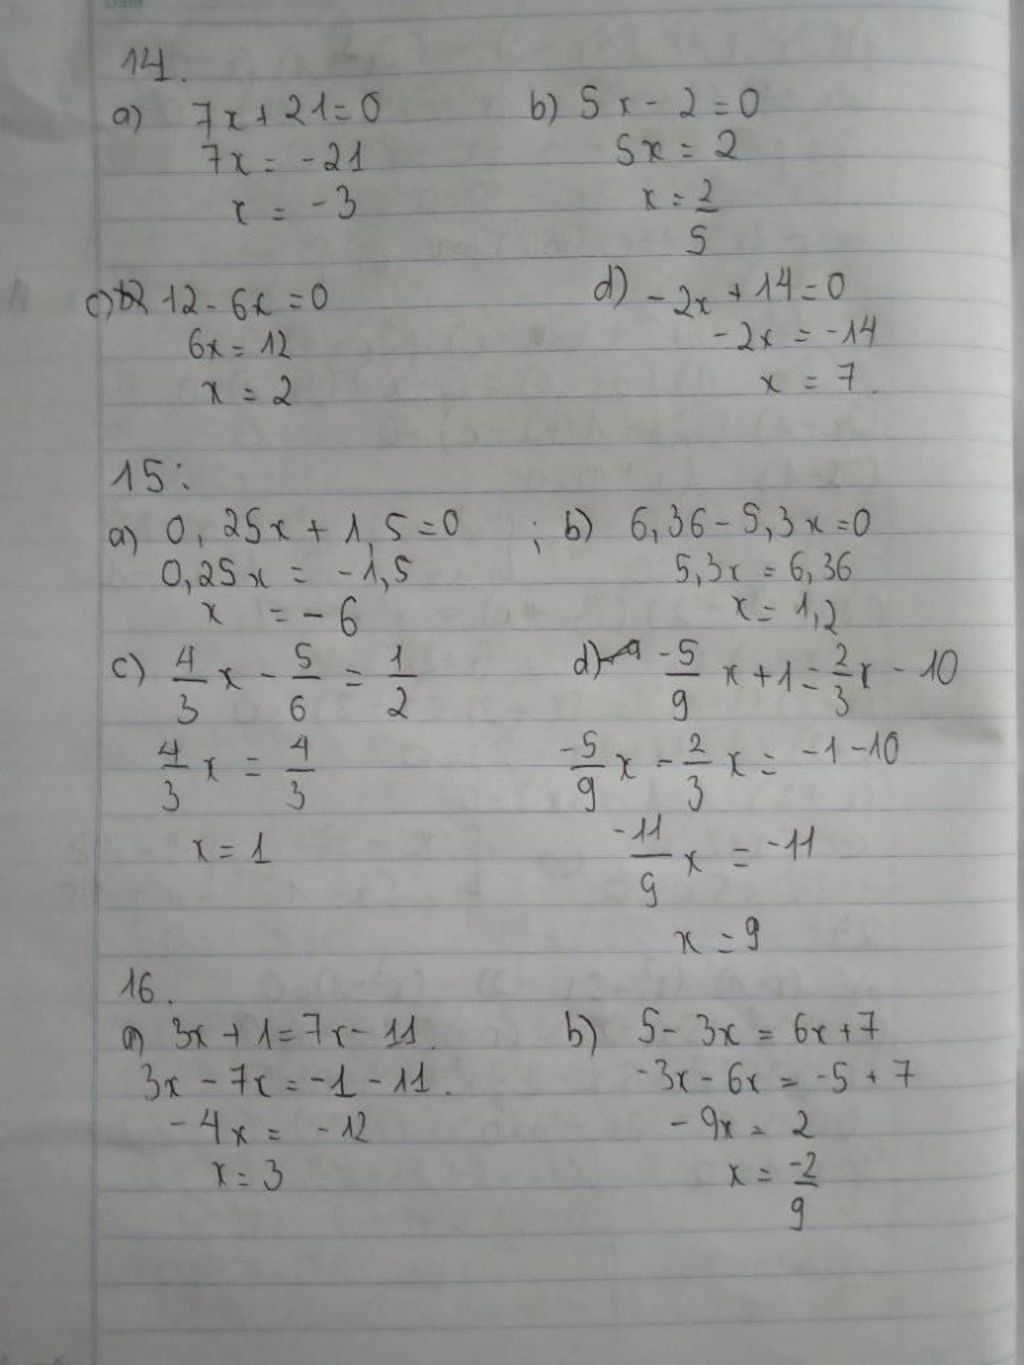 14.
a) 7x + 21 = 0
7x = -21
x = -3
b) 5x - 2 = 0
5x = 2
x = 2/5
c) 12 - 6x = 0
6x = 12
x = 2
d) -2x + 14 = 0
-2x = -14
x = 7.
15:
a) 0,25x + 1,5 = 0
0,25x = -1,5
x = -6
; b) 6,36 - 5,3x = 0
5,3x = 6,36
x = 1,2
c) 4/3 x - 5/6 = 1/2
4/3 x = 4/3
x = 1
d) -5/9 x + 1 = 2/3 x - 10
-5/9 x - 2/3 x = -1 - 10
-11/9 x = -11
x = 9
16.
a) 3x + 1 = 7x - 11.
3x - 7x = -1 - 11.
-4x = -12
x = 3
b) 5 - 3x = 6x + 7
-3x - 6x = -5 + 7
-9x = 2
x = -2/9